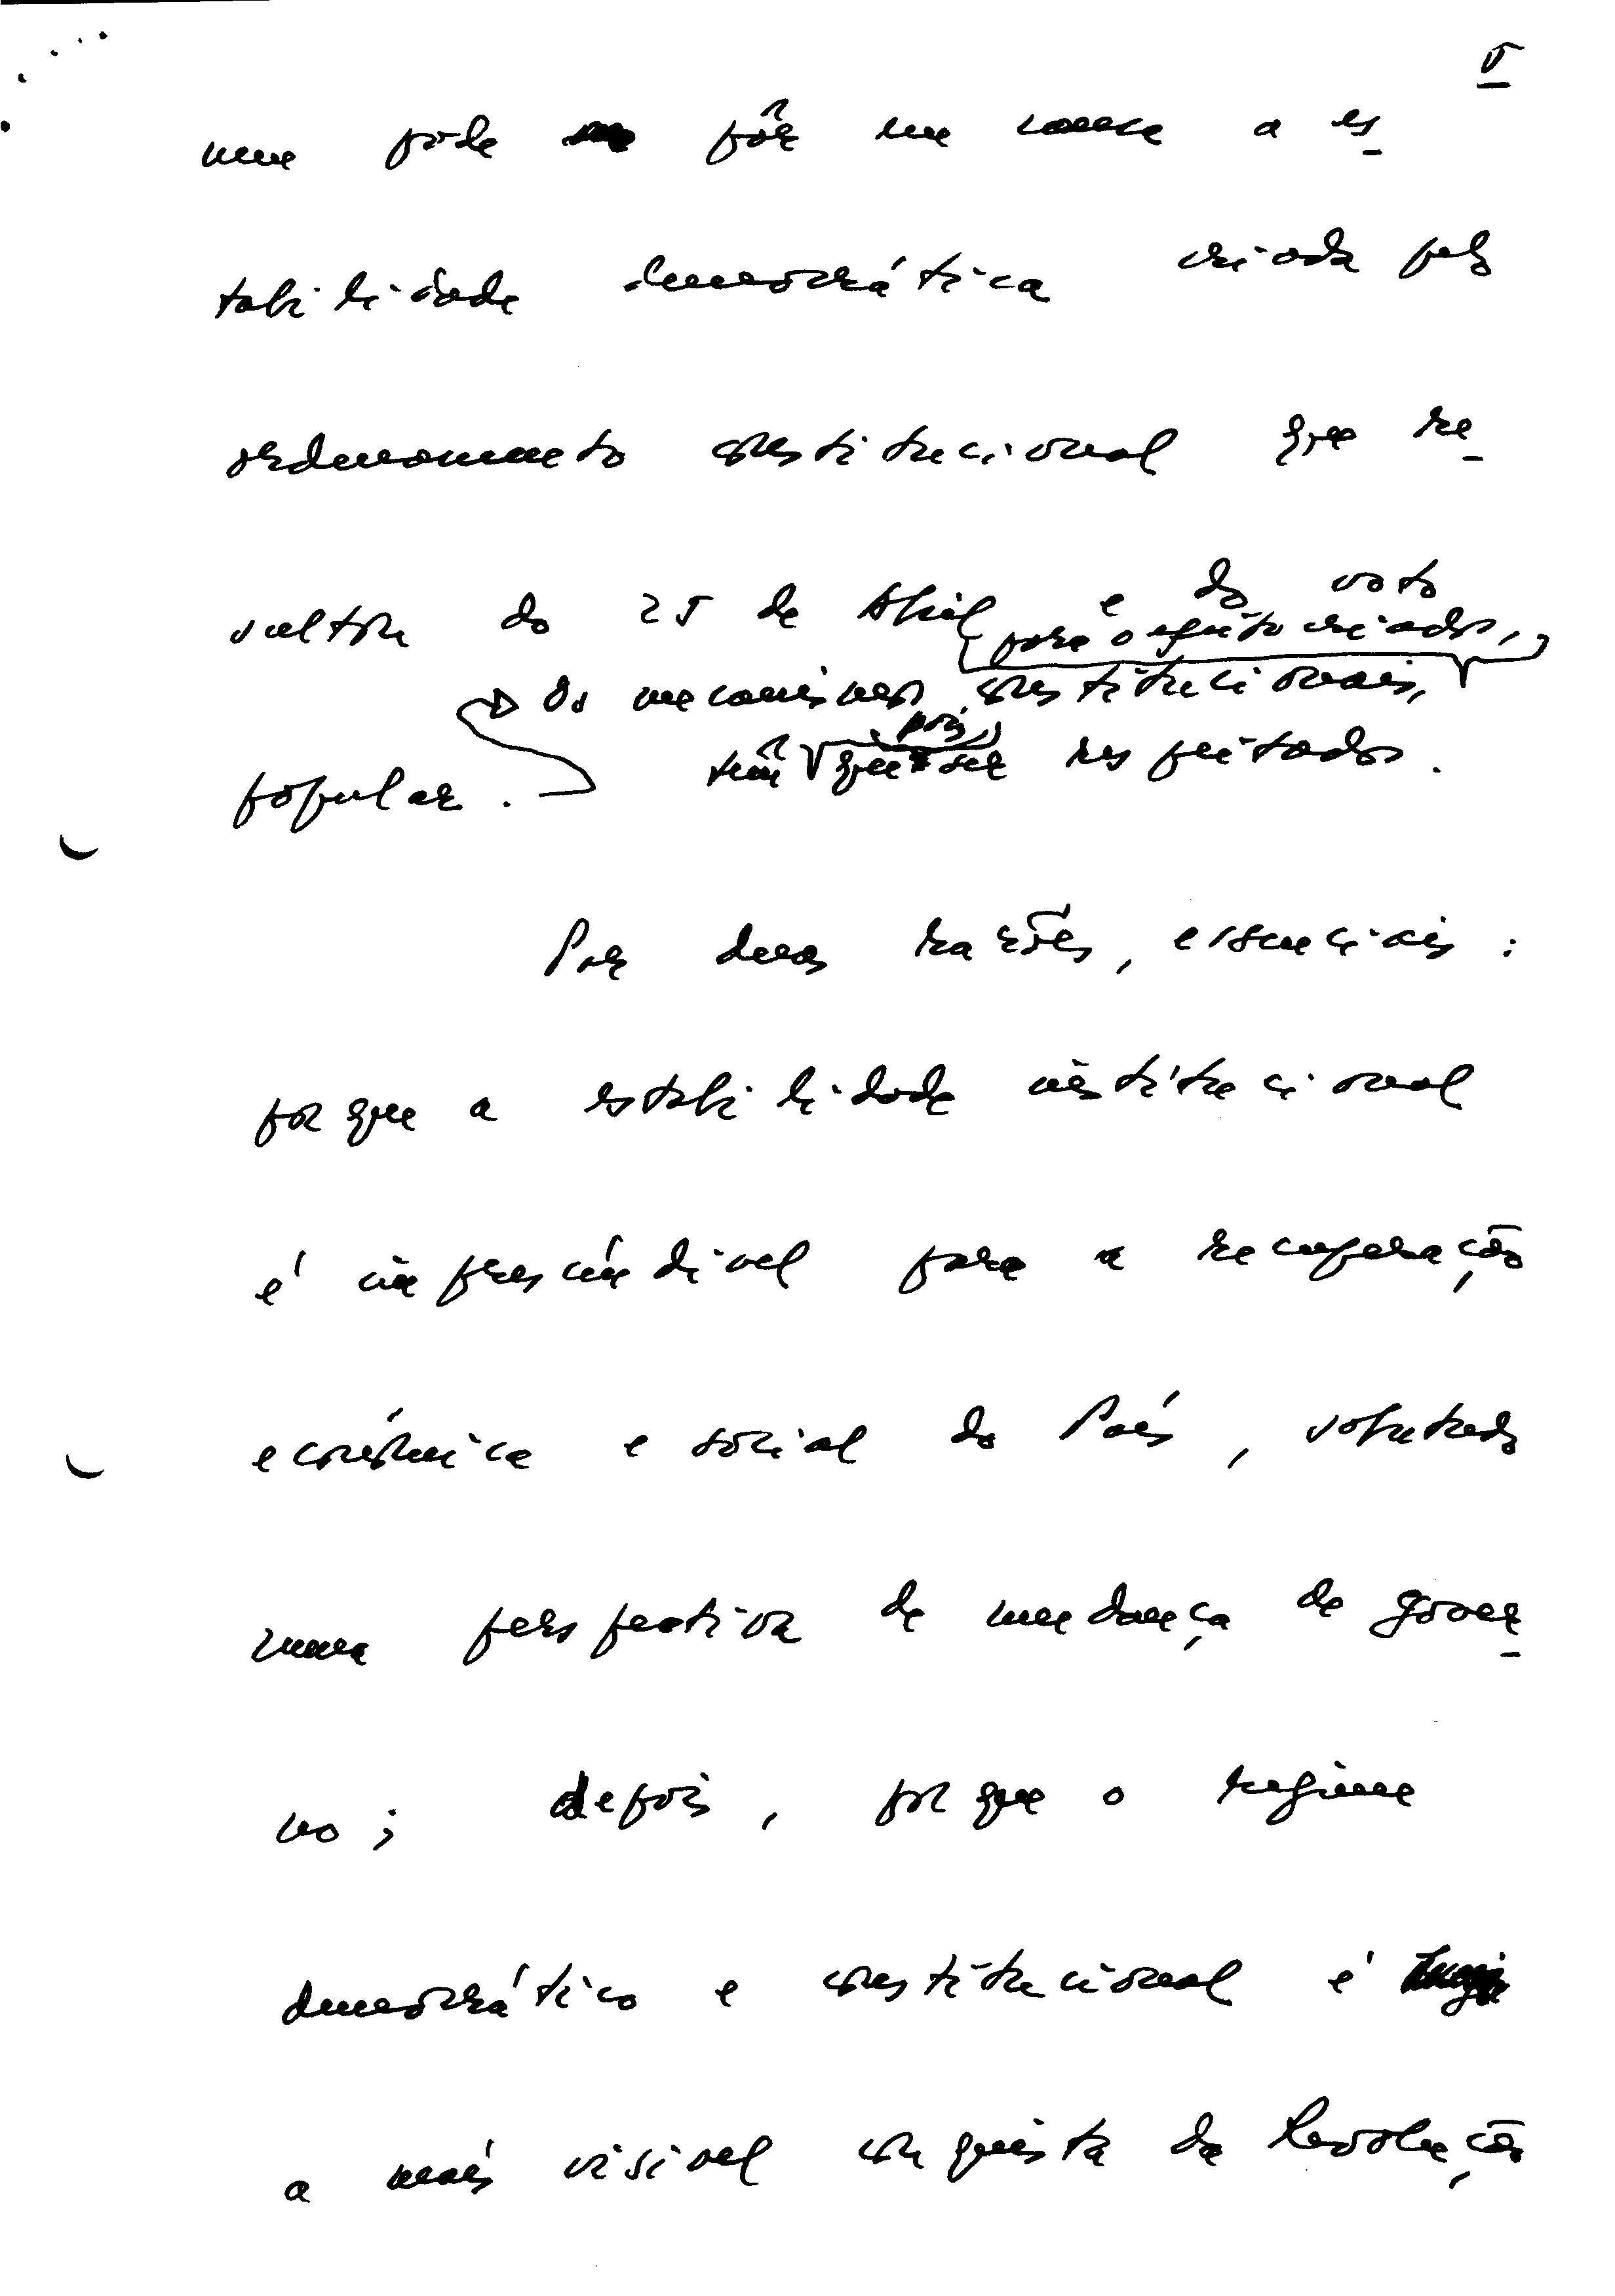 5
nem pode pôr em causa a es-
tabilidade democrática criada pelo
ordenamento constitucional que re-
sultou do 25 de Abril e do voto
popular. Os mecanismos constitucionais,
para o efeito criados,
têm que ser respeitados.
pois,
Por duas razões, essenciais:
porque a estabilidade institucional
é imprescindível para a recuperação
económica e social do País, sobretudo
numa perspectiva de mudança de gover-
no; depois, porque o regime
democrático e constitucional é
a mais visível conquista da Revolução